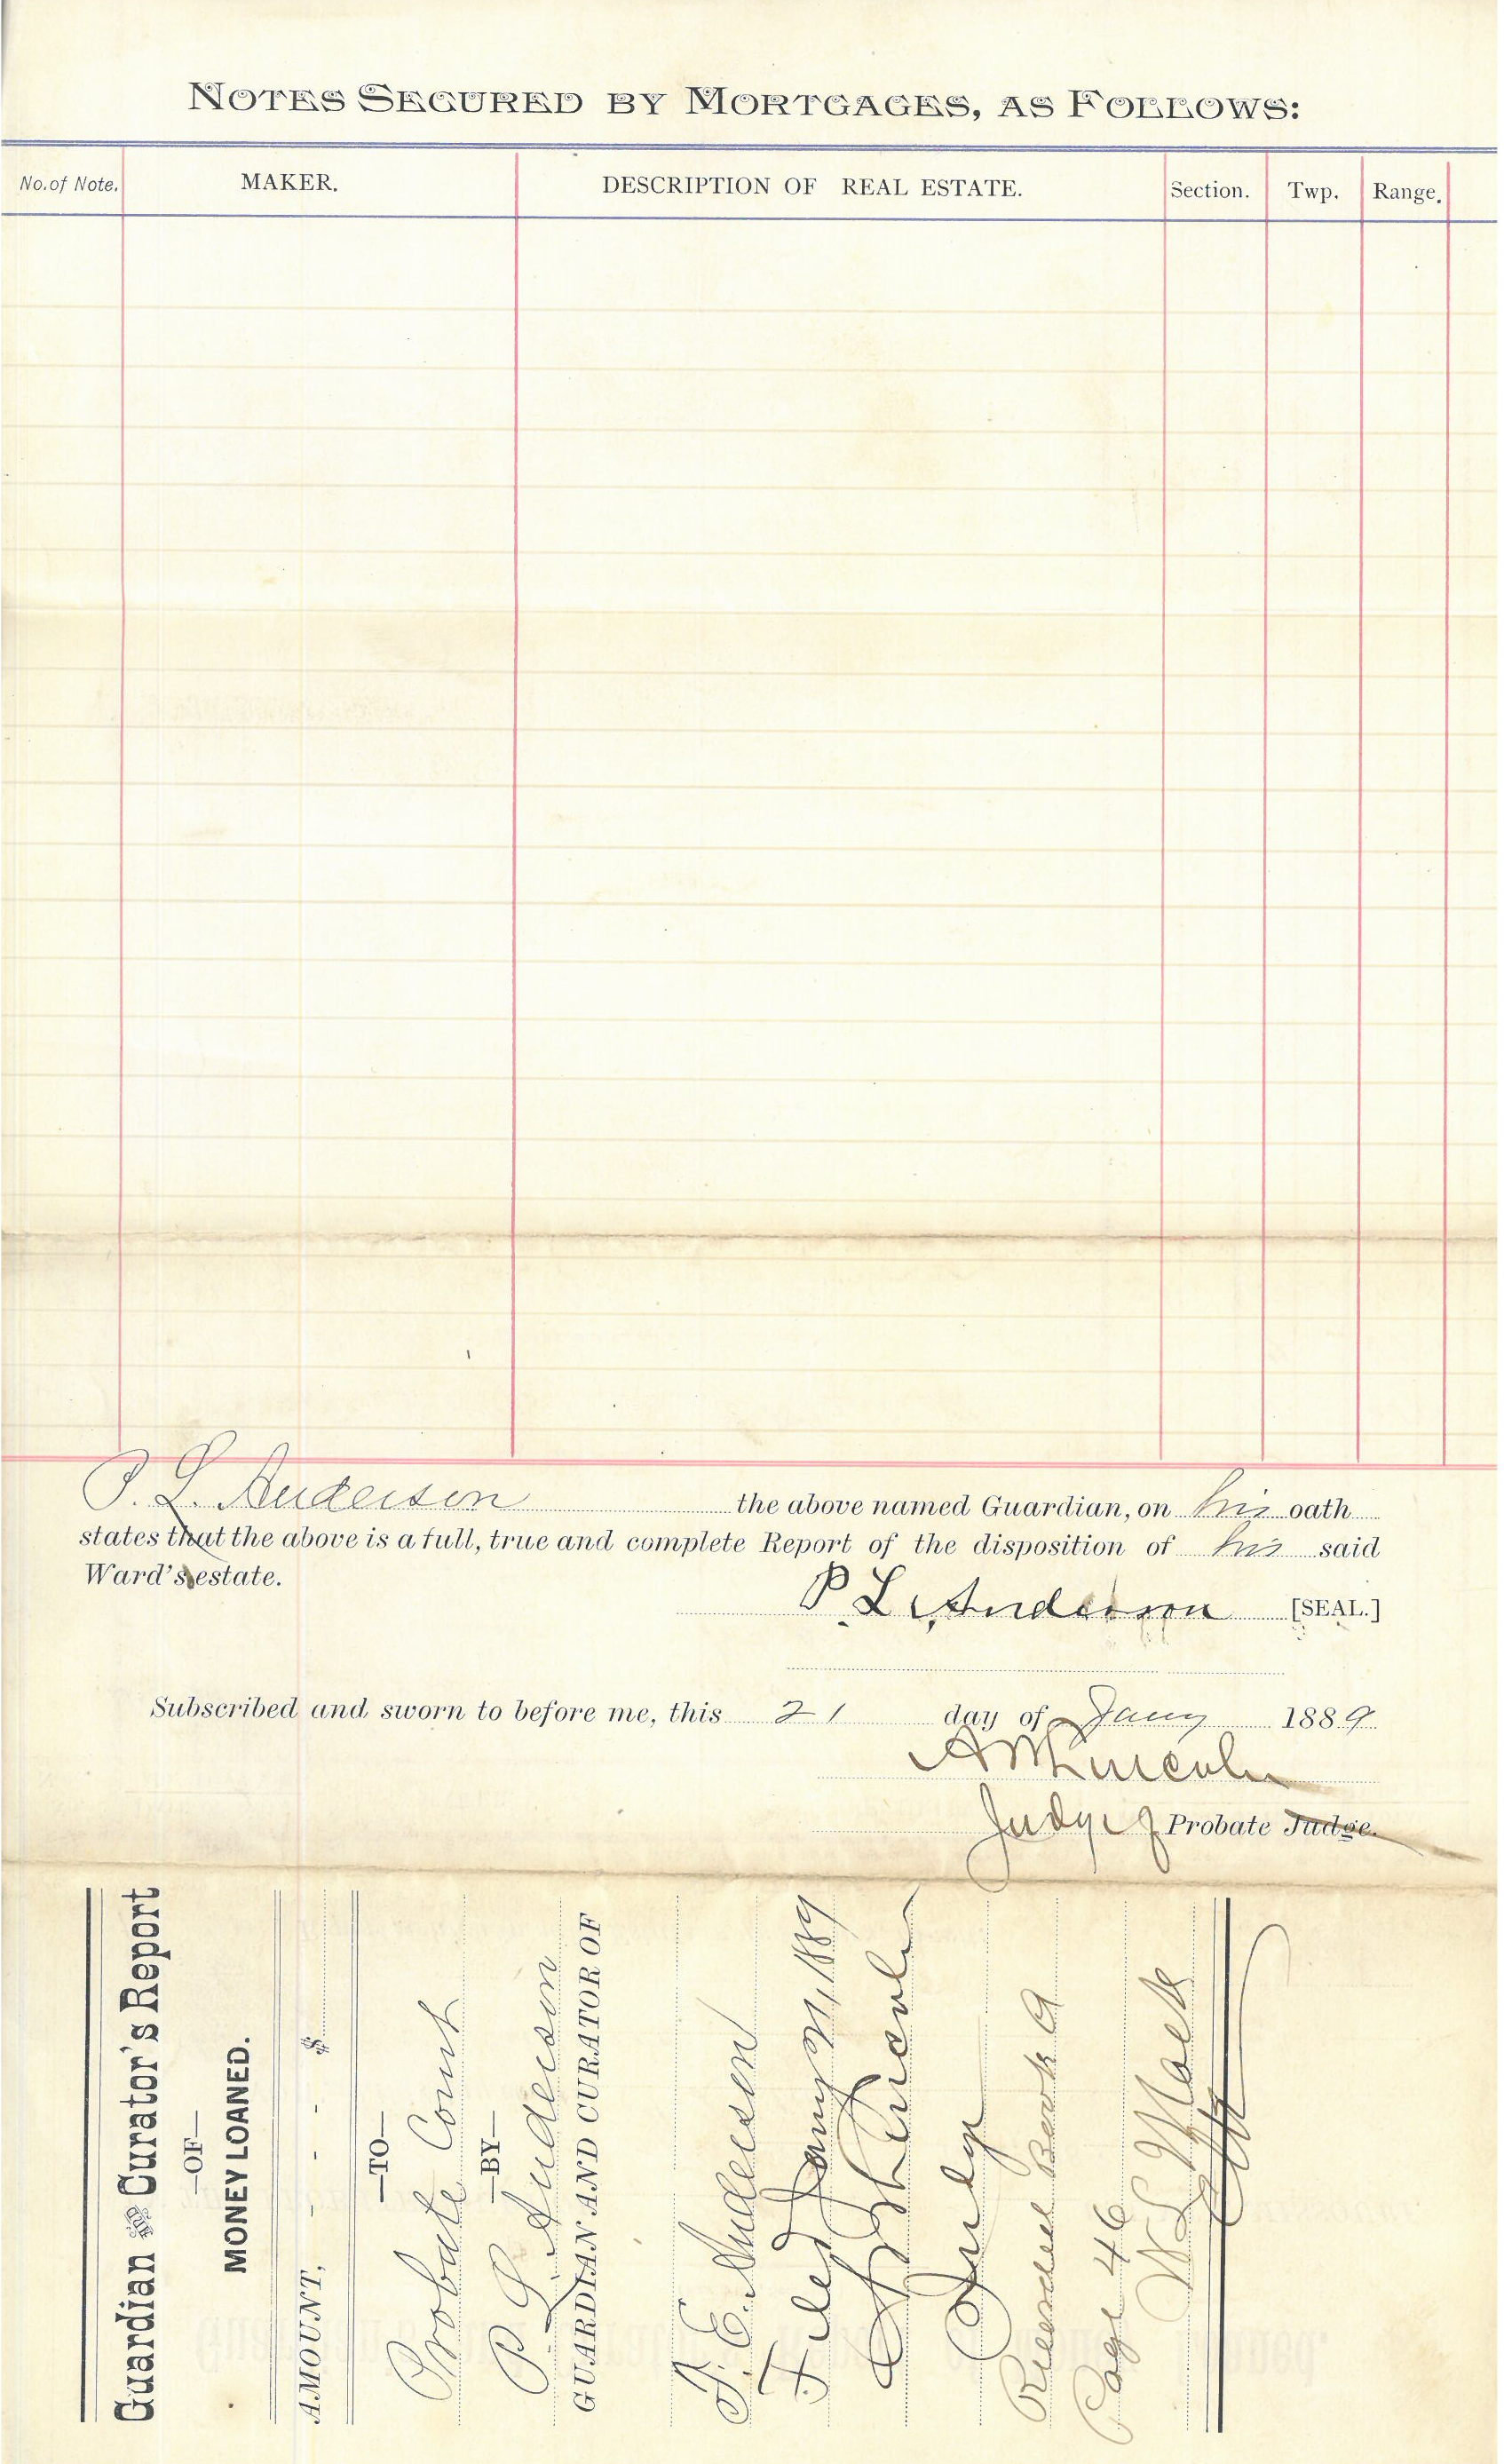 NOTES SECURED BY MORTGAGES, AS FOLLOWS:
No. of Note. MAKER. DESCRIPTION OF REAL ESTATE. Section. Twp. Range.
P. L. Anderson the above named Guardian, on his oath
states that the above is a full, true and complete Report of the disposition of his said
Ward's estate.
P L Anderson [SEAL.]
Subscribed and sworn to before me, this 21 day of Jany 1889
A M Lincoln
Judge of Probate Judge.
Guardian and Curator's Report
—OF—
MONEY LOANED.
AMOUNT, - - - $
—TO—
Probate Court
—BY—
P. L. Anderson
GUARDIAN AND CURATOR OF
J. E. Anderson
Filed Jany 21, 1889
A M Lincoln
Judge
Recorded Book A
Page 46